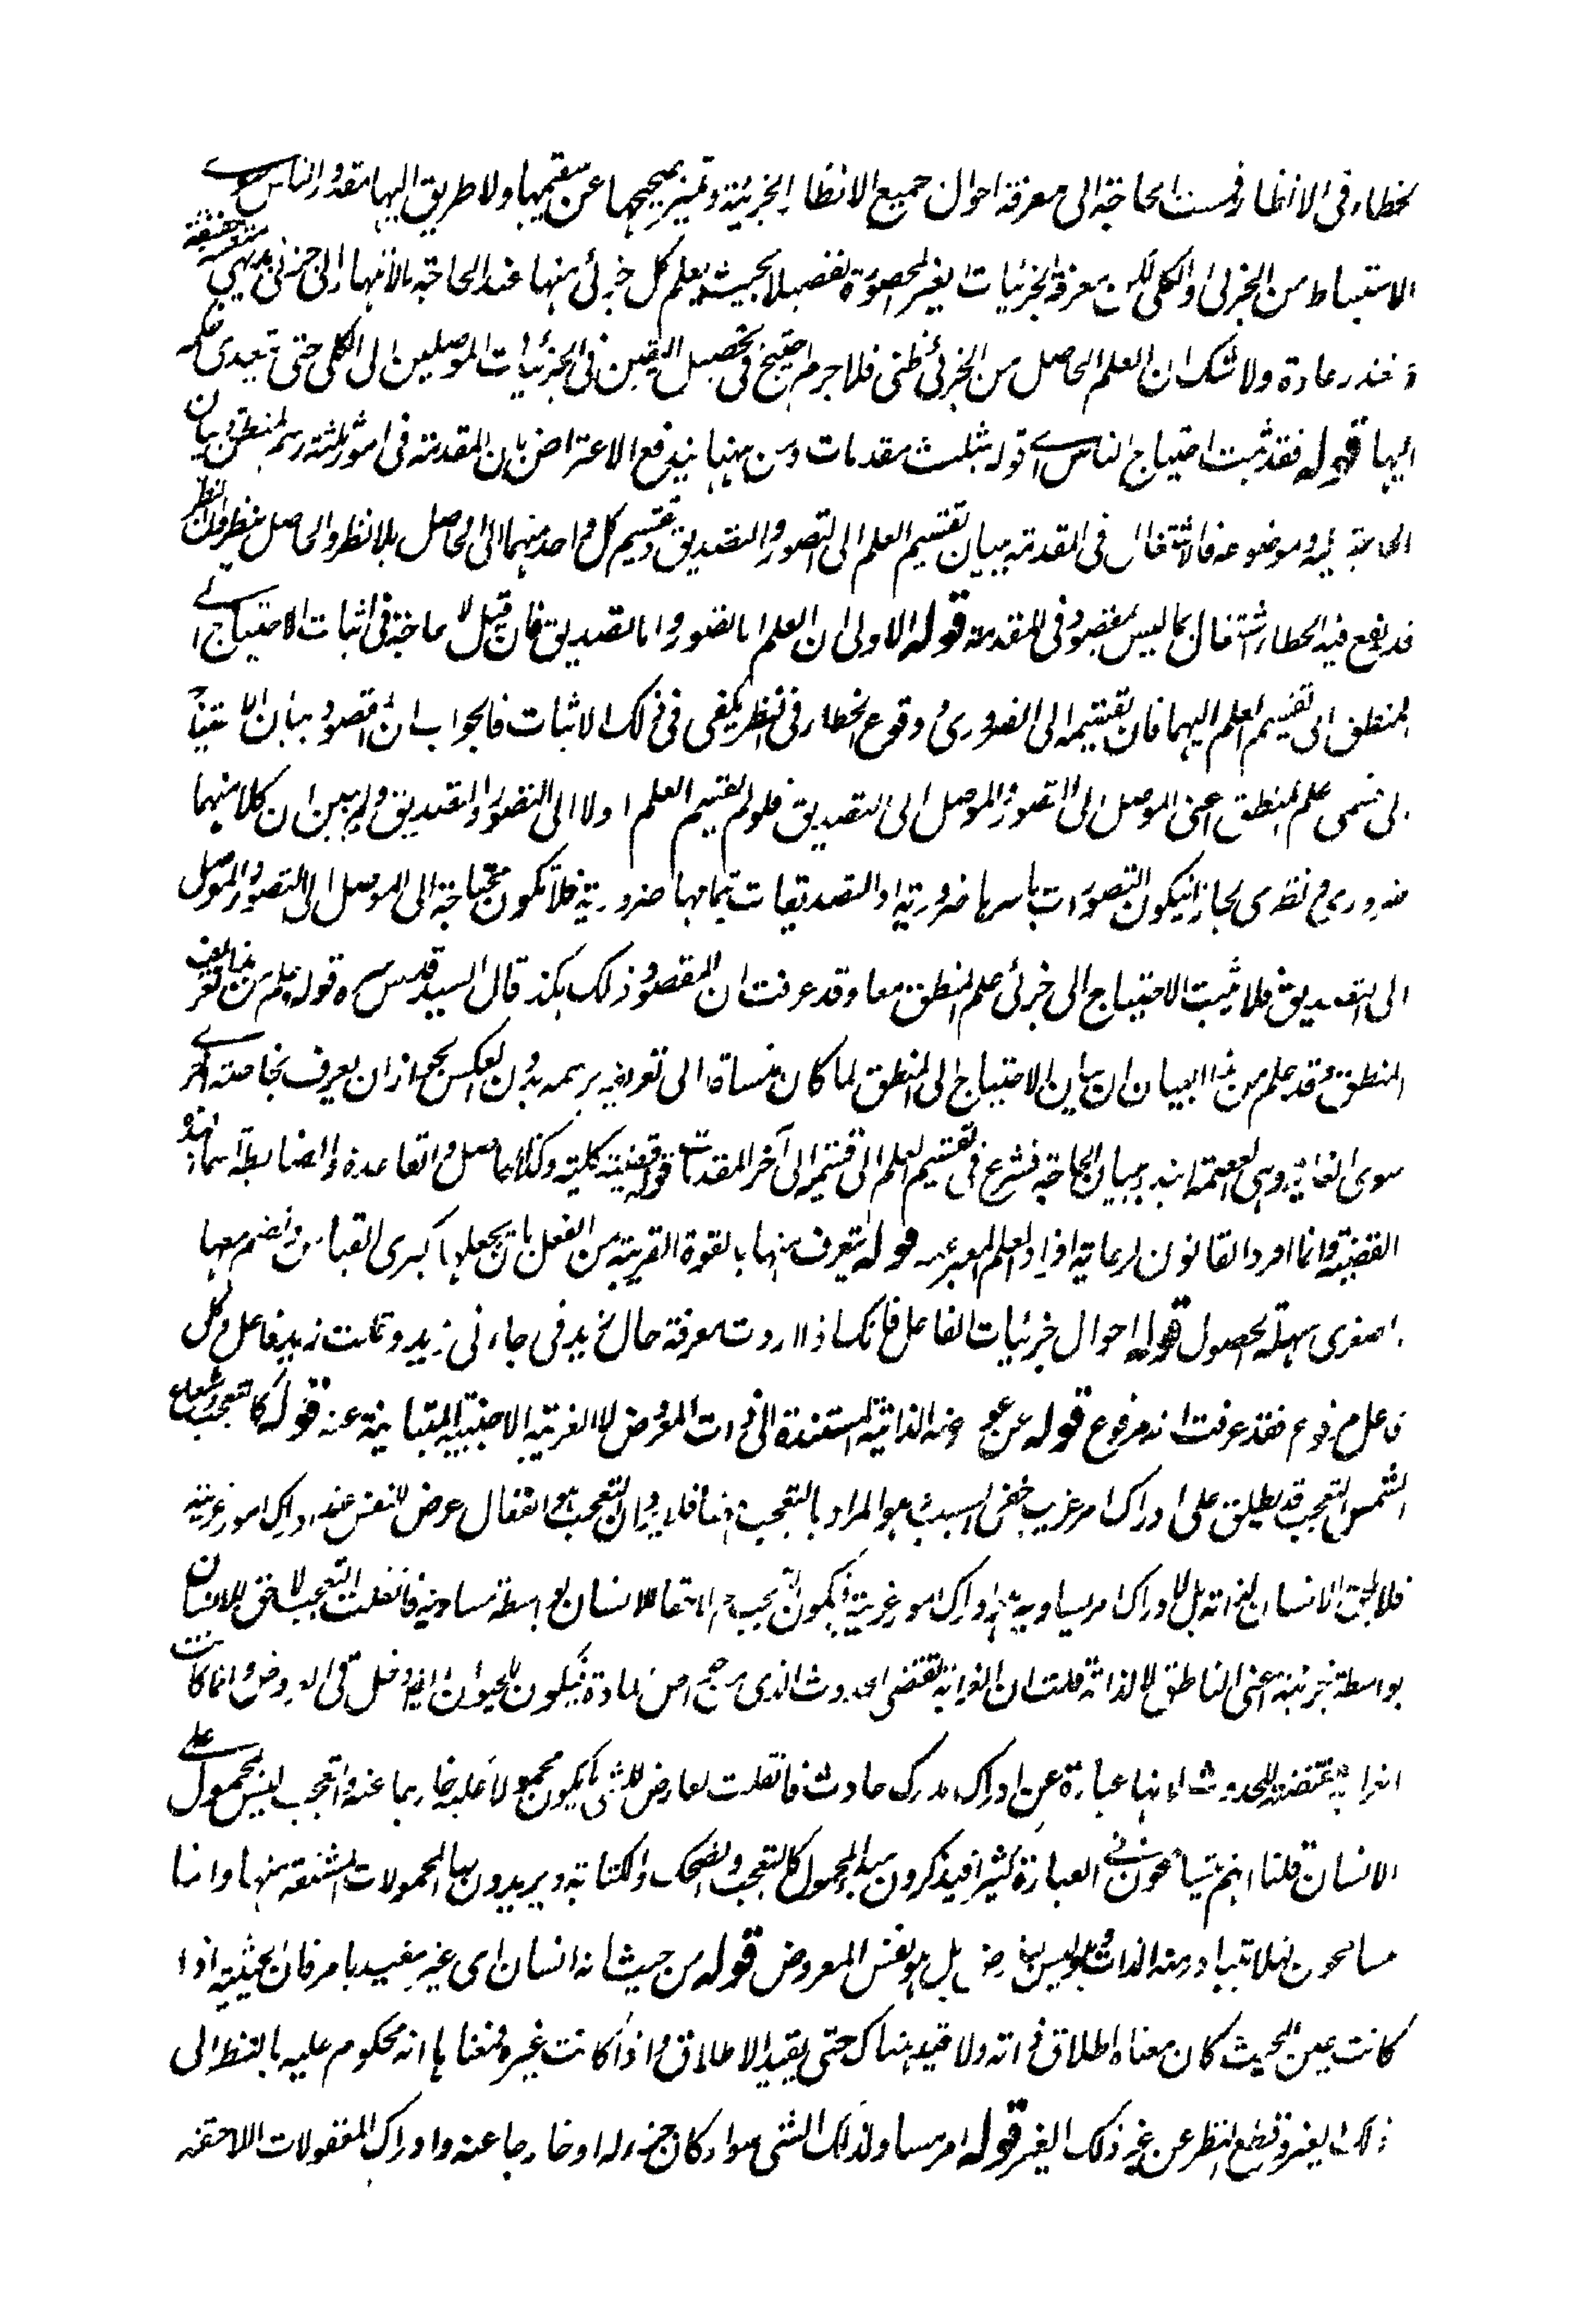 لخطاء فى الانظار فمست الحاجة الى معرفة احوال جميع الانظار الجزئية وتميز صحيحها عن سقيمها ولا طريق اليها مقدور الناس سوى
الاستنباط من الجزئى والكلى لكن معرفة الجزئيات الغير المحصورة تفصيلا بحيث يعلم كل جزئى منها عند الحاجة بالانتهاء الى جزئى بديهى متعسر حقيقة
متعذر عادة ولا شك ان العلم الحاصل من الجزئى ظنى فلا جرم احتيج فى تحصيل اليقين فى الجزئيات الموصلين الى الكلى حتى تتعدى حكمه
اليها قوله فقد ثبت احتياج الناس الخ اقوله بثلث مقدمات ومن ههنا يندفع الاعتراض بان المقدمة فى امور ثلثة رسم المنطق وبيان
الحاجة اليه وموضوعه فالاشتغال فى المقدمة ببيان تقسيم العلم الى التصور والتصديق وتقسيم كل واحد منهما الى الحاصل بلا نظر والحاصل بنظر وان النظر
قد يقع فيه الخطاء اشتغال بما ليس بمقصود فى المقدمة قوله الاولى ان العلم اما تصور واما تصديق فان قيل لا حاجة فى اثبات الاحتياج الى
المنطق الى تقسيم العلم اليهما فان تقسيمه الى الضرورى ووقوع الخطاء فى النظر يكفى فى ذلك الاثبات فالجواب ان المقصود بيان الاحتياج
الى قسمى علم المنطق اعنى الموصل الى التصور والموصل الى التصديق فلو لم يقسم العلم اولا الى التصور والتصديق ولم يبين ان كلا منهما
ضرورى ونظرى لجاز ان يكون التصورات باسرها ضرورية او التصديقات بتمامها ضرورية فلا تكون محتاجة الى الموصل الى التصور والموصل
الى التصديق فلا يثبت الاحتياج الى جزئى علم المنطق معا وقد عرفت ان المقصود ذلك هكذا قال السيد قدس سره قوله علم من هذا تعريف
المنطق وقد علم من هذا البيان ان بيان الاحتياج الى المنطق لما كان منساقا الى تعريفه برسمه بدون العكس لجواز ان يعرف بخاصته اخرى
سوى الغاية وهى العصمة ابتدء ببيان الحاجة فشرع فى تقسيم العلم الى قسميه الى آخر المقدمات قوله قضية كلية وكذا الاصل والقاعدة والضابطة اسماء لهذه
القضية وانما اورد القانون لرعاية افراد العلم المعبر عنه قوله يتعرف منها بالقوة القريبة من الفعل بان يجعلها كبرى القياس وتضم معها
صغرى سهلة الحصول قوله احوال جزئيات الفاعل فانك اذا اردت معرفة حال زيد فى جاءنى زيد وقلت زيد فاعل وكل
فاعل مرفوع فقد عرفت انه مرفوع قوله عن عوارضه الذاتية المستندة الى ذات المعروض لا الغريبة الاجنبية المتباينة عنه قوله كالتعجب وشعاع
الشمس التعجب قد يطلق على ادراك امر غريب خفى السبب وهو المراد بالتعجب ههنا فلا يرد ان التعجب هو انفعال عرض للنفس عند ادراك امور غريبة
فلا يلحق الانسان لذاته بل لادراك امر يساويه وهو ادراك امور غريبة فيكون التعجب لاحقا للانسان بواسطة مساوية فان قلت التعجب لاحق للانسان
بواسطة جزئية اعنى الناطق لا لذاته قلت ان الغرابة تقتضى الحدوث الذى من خواص المادة فيكون للحيوان ايضا دخل فى العروض وانما كانت
الغرابة مقتضية للحدوث لانها عبارة عن ادراك مدرك حادث فان قلت العارض للشئ ما يكون محمولا عليه خارجا عنه والتعجب ليس بمحمول على
الانسان قلنا انهم يتسامحون فى العبارة كثيرا فيذكرون مبدء المحمول كالتعجب والضحك والكتابة ويريدون بها المحمولات المشتقة منها وانما
يتسامحون لئلا يتبادر منه الذات وليس بعارض بل هو نفس المعروض قوله من حيث انه انسان اى غير مقيد بامر فان الحيثية اذا
كانت عين المحيث كان معناه اطلاق ذاته ولا قيد هناك حتى يقيد الاطلاق واذا كانت غيره فمعناها انه محكوم عليه بالنظر الى
ذلك الغير وقطع النظر عن غير ذلك الغير قوله امر مساو لذلك الشئ سواء كان جزء له او خارجا عنه وادراك المعقولات اللاحقة